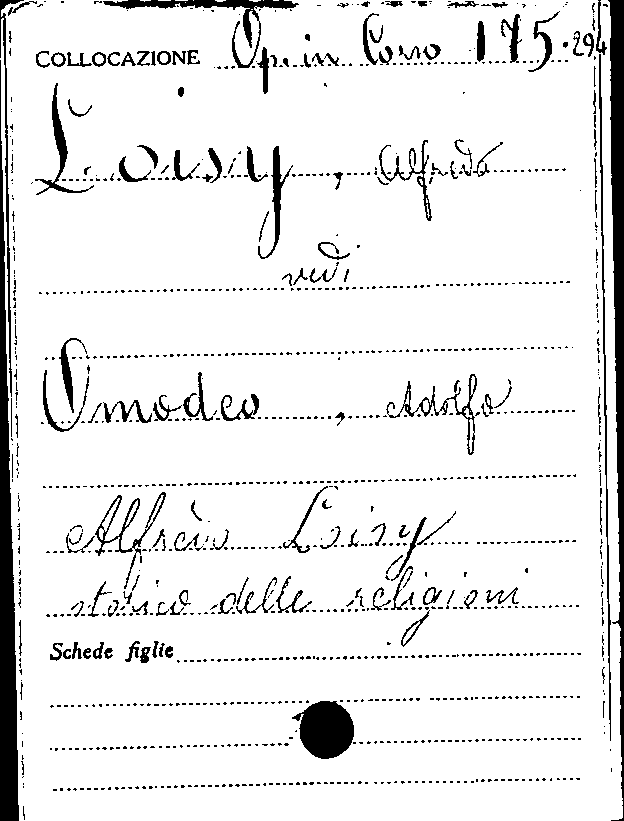 COLLOCAZIONE Op. in Corso 175.294
Loisy, Alfredo
vedi
Omodeo, Adolfo
Alfredo Loisy
storico delle religioni
Schede figlie